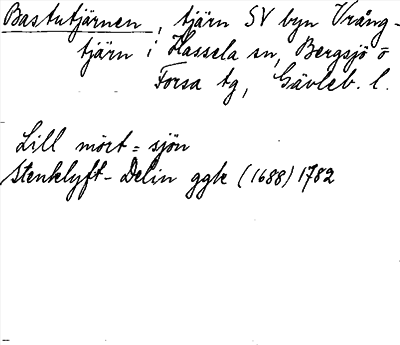 Bastutjärnen, tjärn SV byn Vrång-
tjärn i Hassela sn, Bergsjö o
Forsa tg, Gävleb. l.
Lill mört=sjön
Stenklyft- Delin ggk (1688) 1782